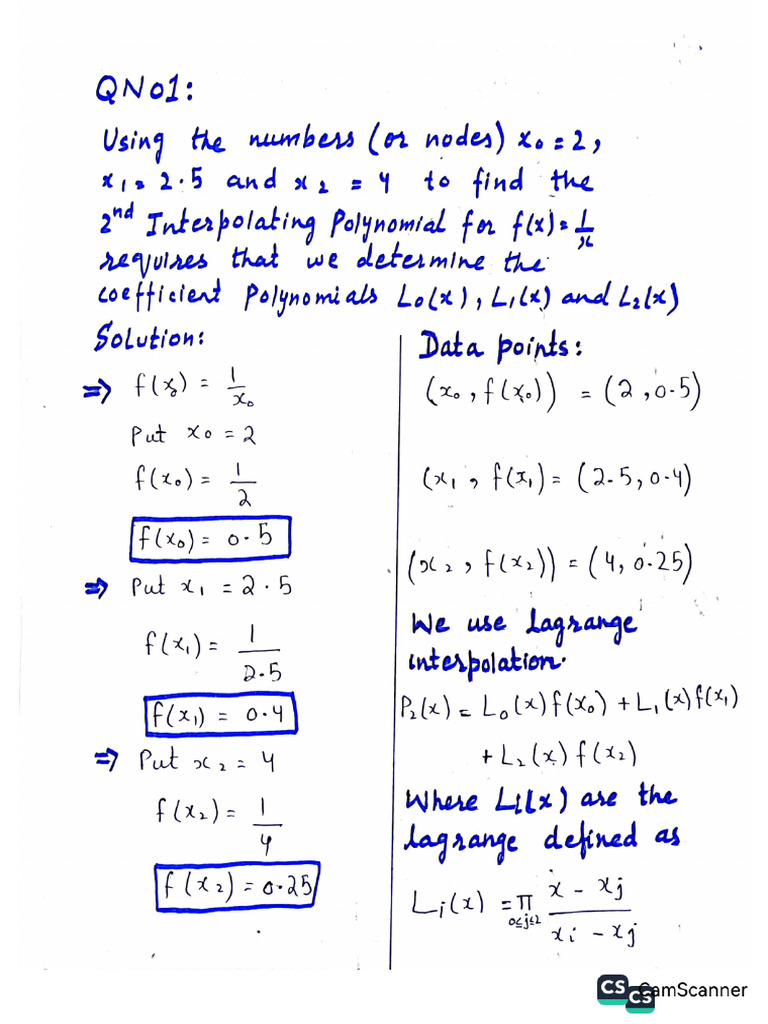 QNo1:
Using the numbers (or nodes) x₀ = 2,
x₁ = 2.5 and x₂ = 4 to find the
2nd Interpolating Polynomial for f(x) = 1/x
requires that we determine the
coefficient Polynomials L₀(x), L₁(x) and L₂(x)
Solution:
⇒ f(x₀) = 1/x₀
Put x₀ = 2
f(x₀) = 1/2
f(x₀) = 0.5
⇒ Put x₁ = 2.5
f(x₁) = 1/2.5
f(x₁) = 0.4
⇒ Put x₂ = 4
f(x₂) = 1/4
f(x₂) = 0.25
Data points:
(x₀, f(x₀)) = (2, 0.5)
(x₁, f(x₁) = (2.5, 0.4)
(x₂, f(x₂)) = (4, 0.25)
We use Lagrange
interpolation.
P₂(x) = L₀(x) f(x₀) + L₁(x) f(x₁)
+ L₂(x) f(x₂)
Where Li(x) are the
lagrange defined as
Lᵢ(x) = Π 0≤j≤2 (x - xj)/(xi - xj)
CS CS CamScanner